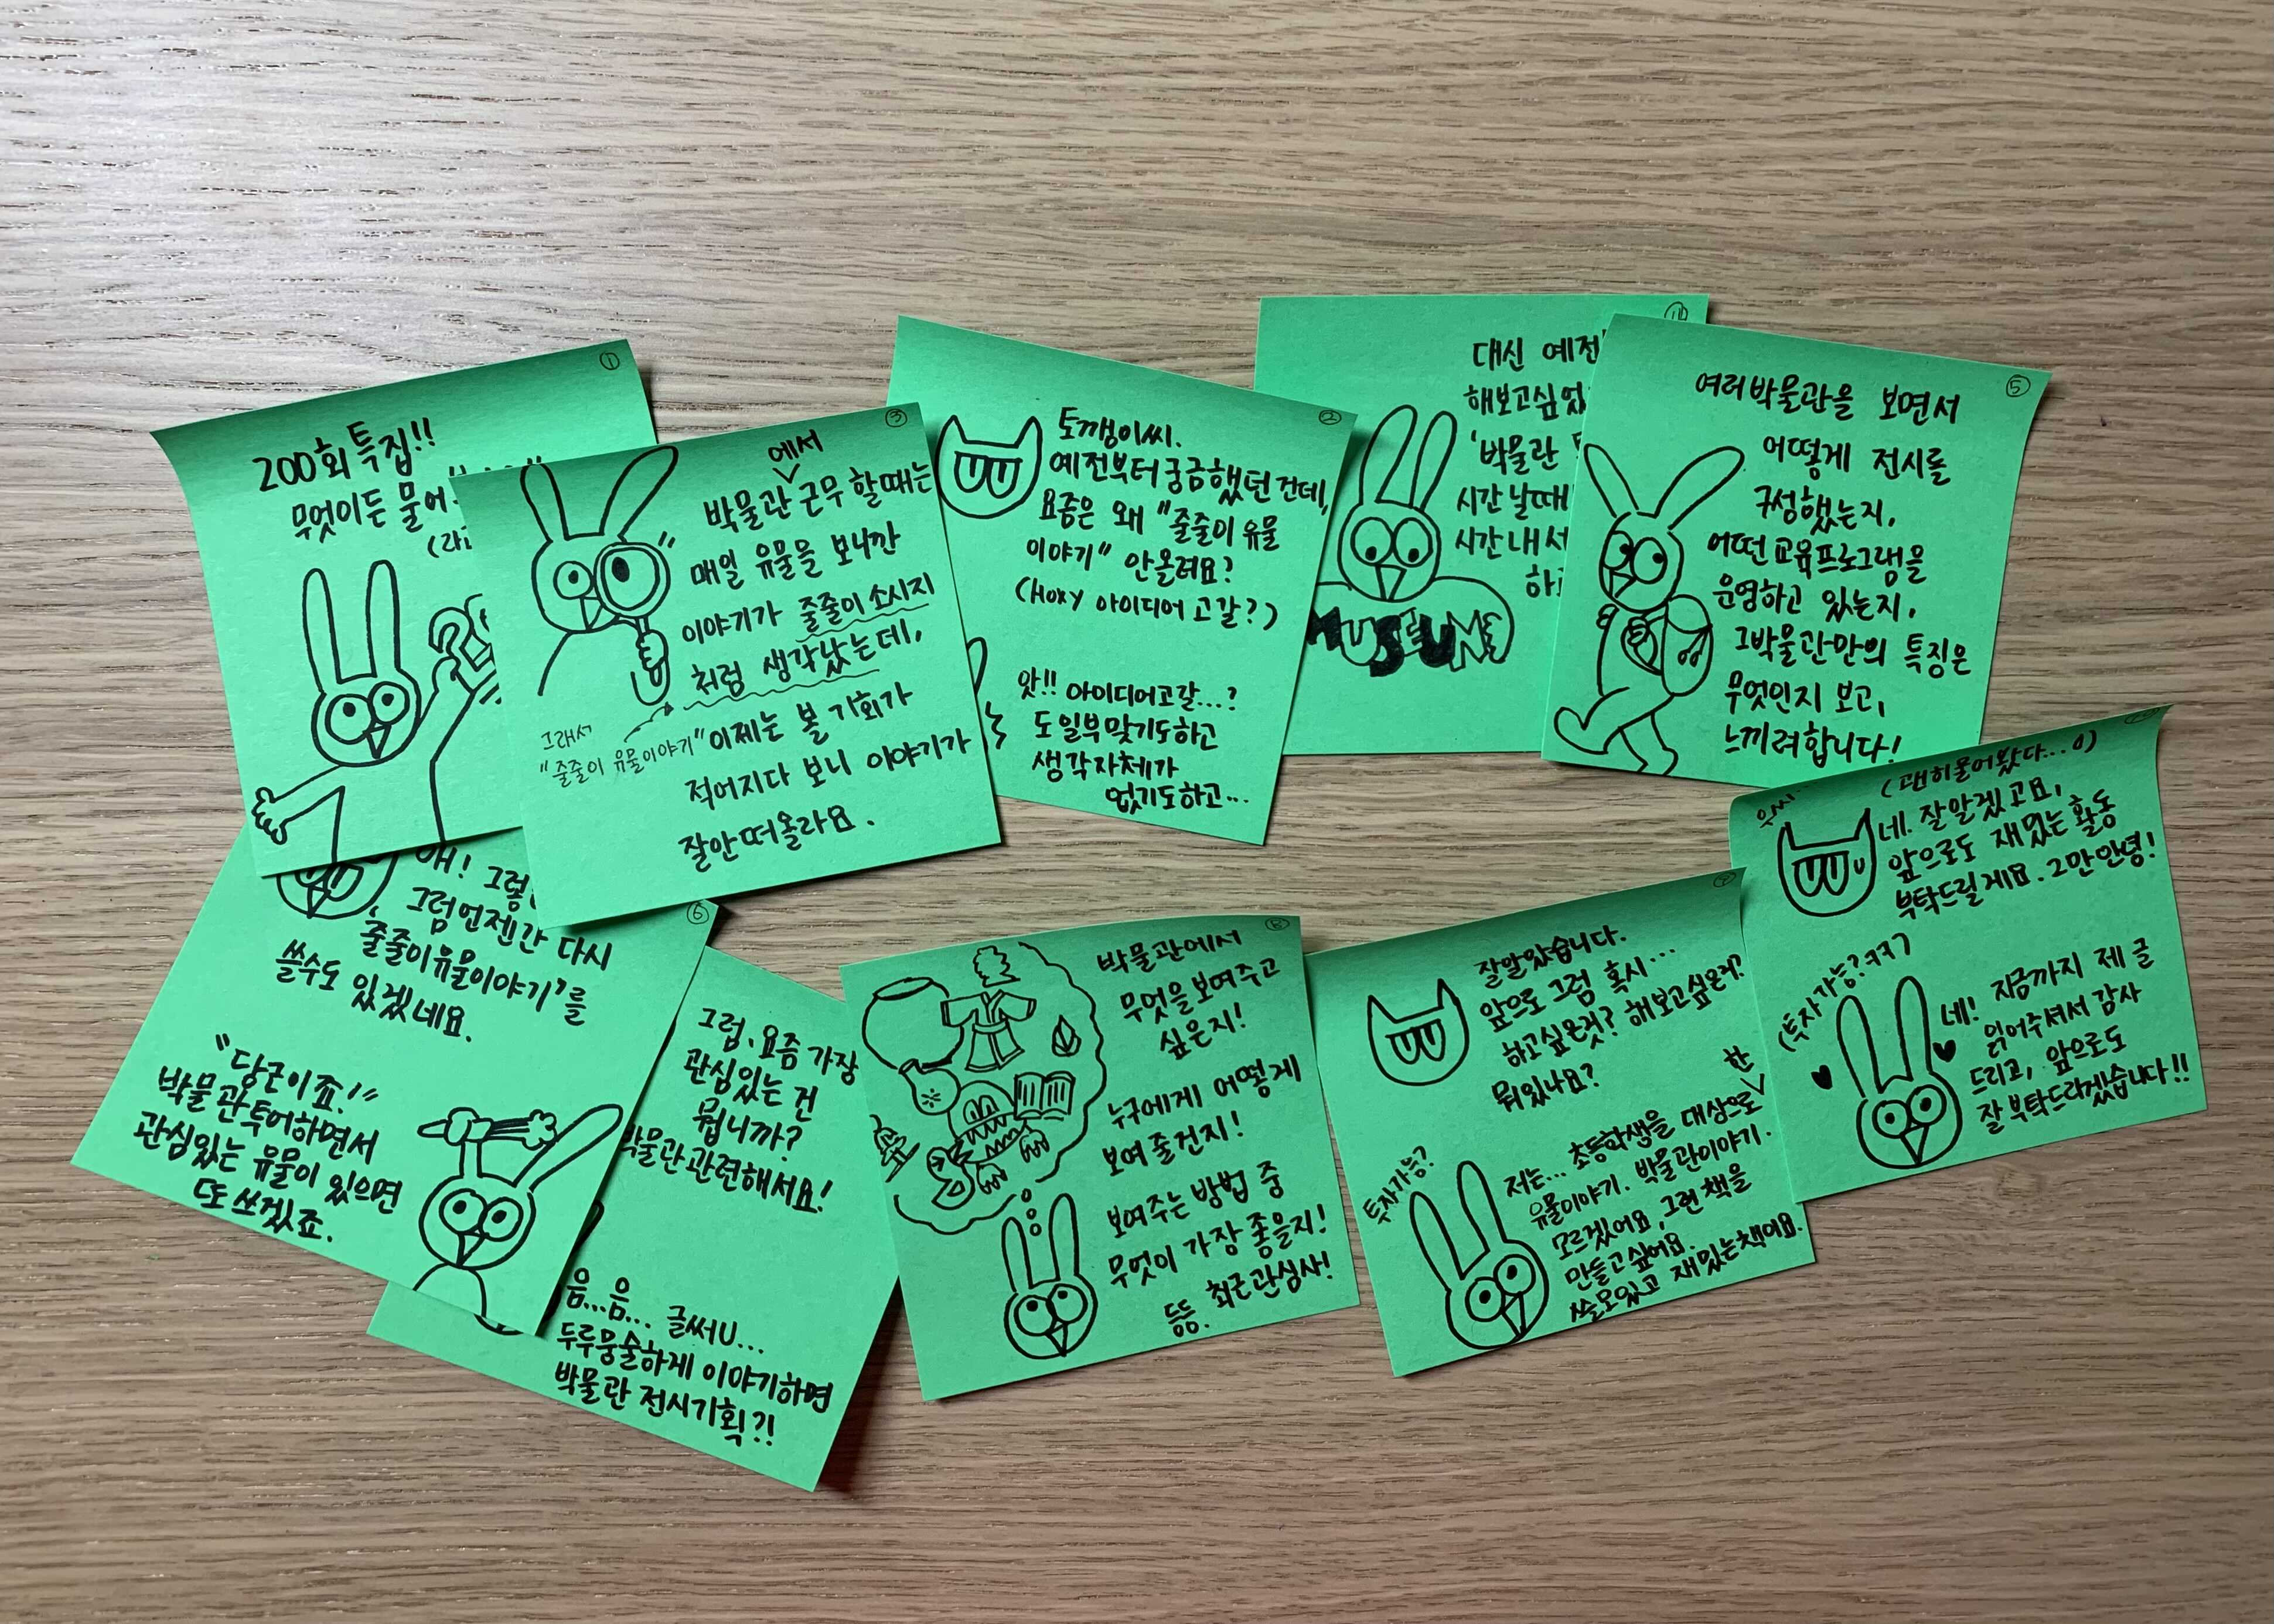 ①
200회 특집!!
무엇이든 물어
②
토깽이씨.
예전부터 궁금했던 건데,
요즘은 왜 "줄줄이 유물
이야기" 안올려요?
(Hoxy 아이디어 고갈?)
앗!! 아이디어고갈...?
도 일부맞기도하고
생각자체가
없기도하고...
③
에서
박물관 근무 할때는
매일 유물을 보니깐
이야기가 줄줄이 소시지
처럼 생각났는데,
그래서
"줄줄이 유물이야기"
이제는 볼 기회가
적어지다 보니 이야기가
잘안떠올라요.
대신 예전
해보고싶었
'박물관
시간날때
시간내서
MUSEUM
⑤
여러박물관을 보면서
어떻게 전시를
구성했는지,
어떤교육프로그램을
운영하고 있는지,
그박물관만의 특징은
무엇인지 보고,
느끼려합니다!
⑥
그럼언젠간 다시
'줄줄이유물이야기'를
쓸수도 있겠네요.
"당근이죠!"
박물관투어하면서
관심있는 유물이 있으면
또 쓰겠죠.
그럼, 요즘 가장
관심있는 건
뭡니까?
박물관관련해서요!
음...음... 글쎄U...
두루뭉술하게 이야기하면
박물관 전시기획?!
⑧
박물관에서
무엇을보여주고
싶은지!
누구에게 어떻게
보여줄건지!
보여주는 방법 중
무엇이 가장 좋을지!
등등. 최근관심사!
잘알았습니다.
앞으로 그럼 혹시...
하고싶은것? 해보고싶은거?
뭐있나요?
한
저는... 초등학생을 대상으로
유물이야기. 박물관이야기.
모르겠어요, 그런 책을
만들고싶어요.
쓸모있고 재밌는책이요.
투자가능?
(괜히물어봤다...)
네. 잘알겠고요,
앞으로도 재밌는 활동
부탁드릴게요. 그만안녕!
(투자가능?ㅋㅋ)
네! 지금까지 제 글
읽어주셔서 감사
드리고, 앞으로도
잘부탁드리겠습니다!!